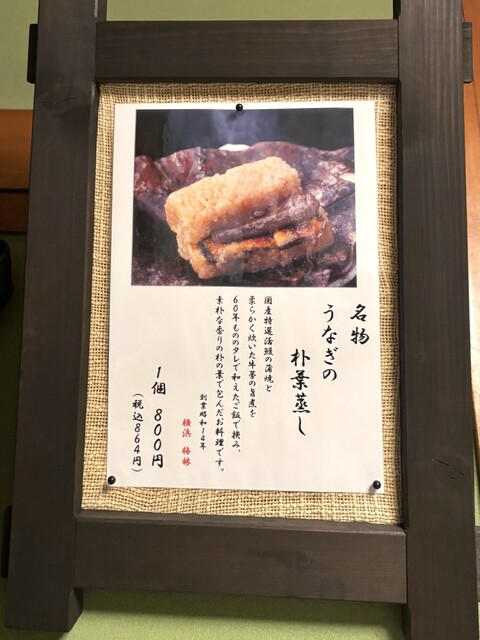 名物
うなぎの
朴葉蒸し
国産特選活鰻の蒲焼と
柔らかく炊いた牛蒡の旨煮を
60年もののタレで和えたご飯で挟み、
素朴な香りの朴の葉で包んだお料理です。
創業昭和14年
横浜 梅林
1個 800円
(税込864円)